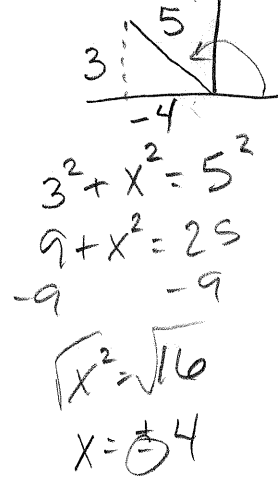 5
3
-4
3² + x² = 5²
9 + x² = 25
-9 -9
√x² = √16
x = ± 4